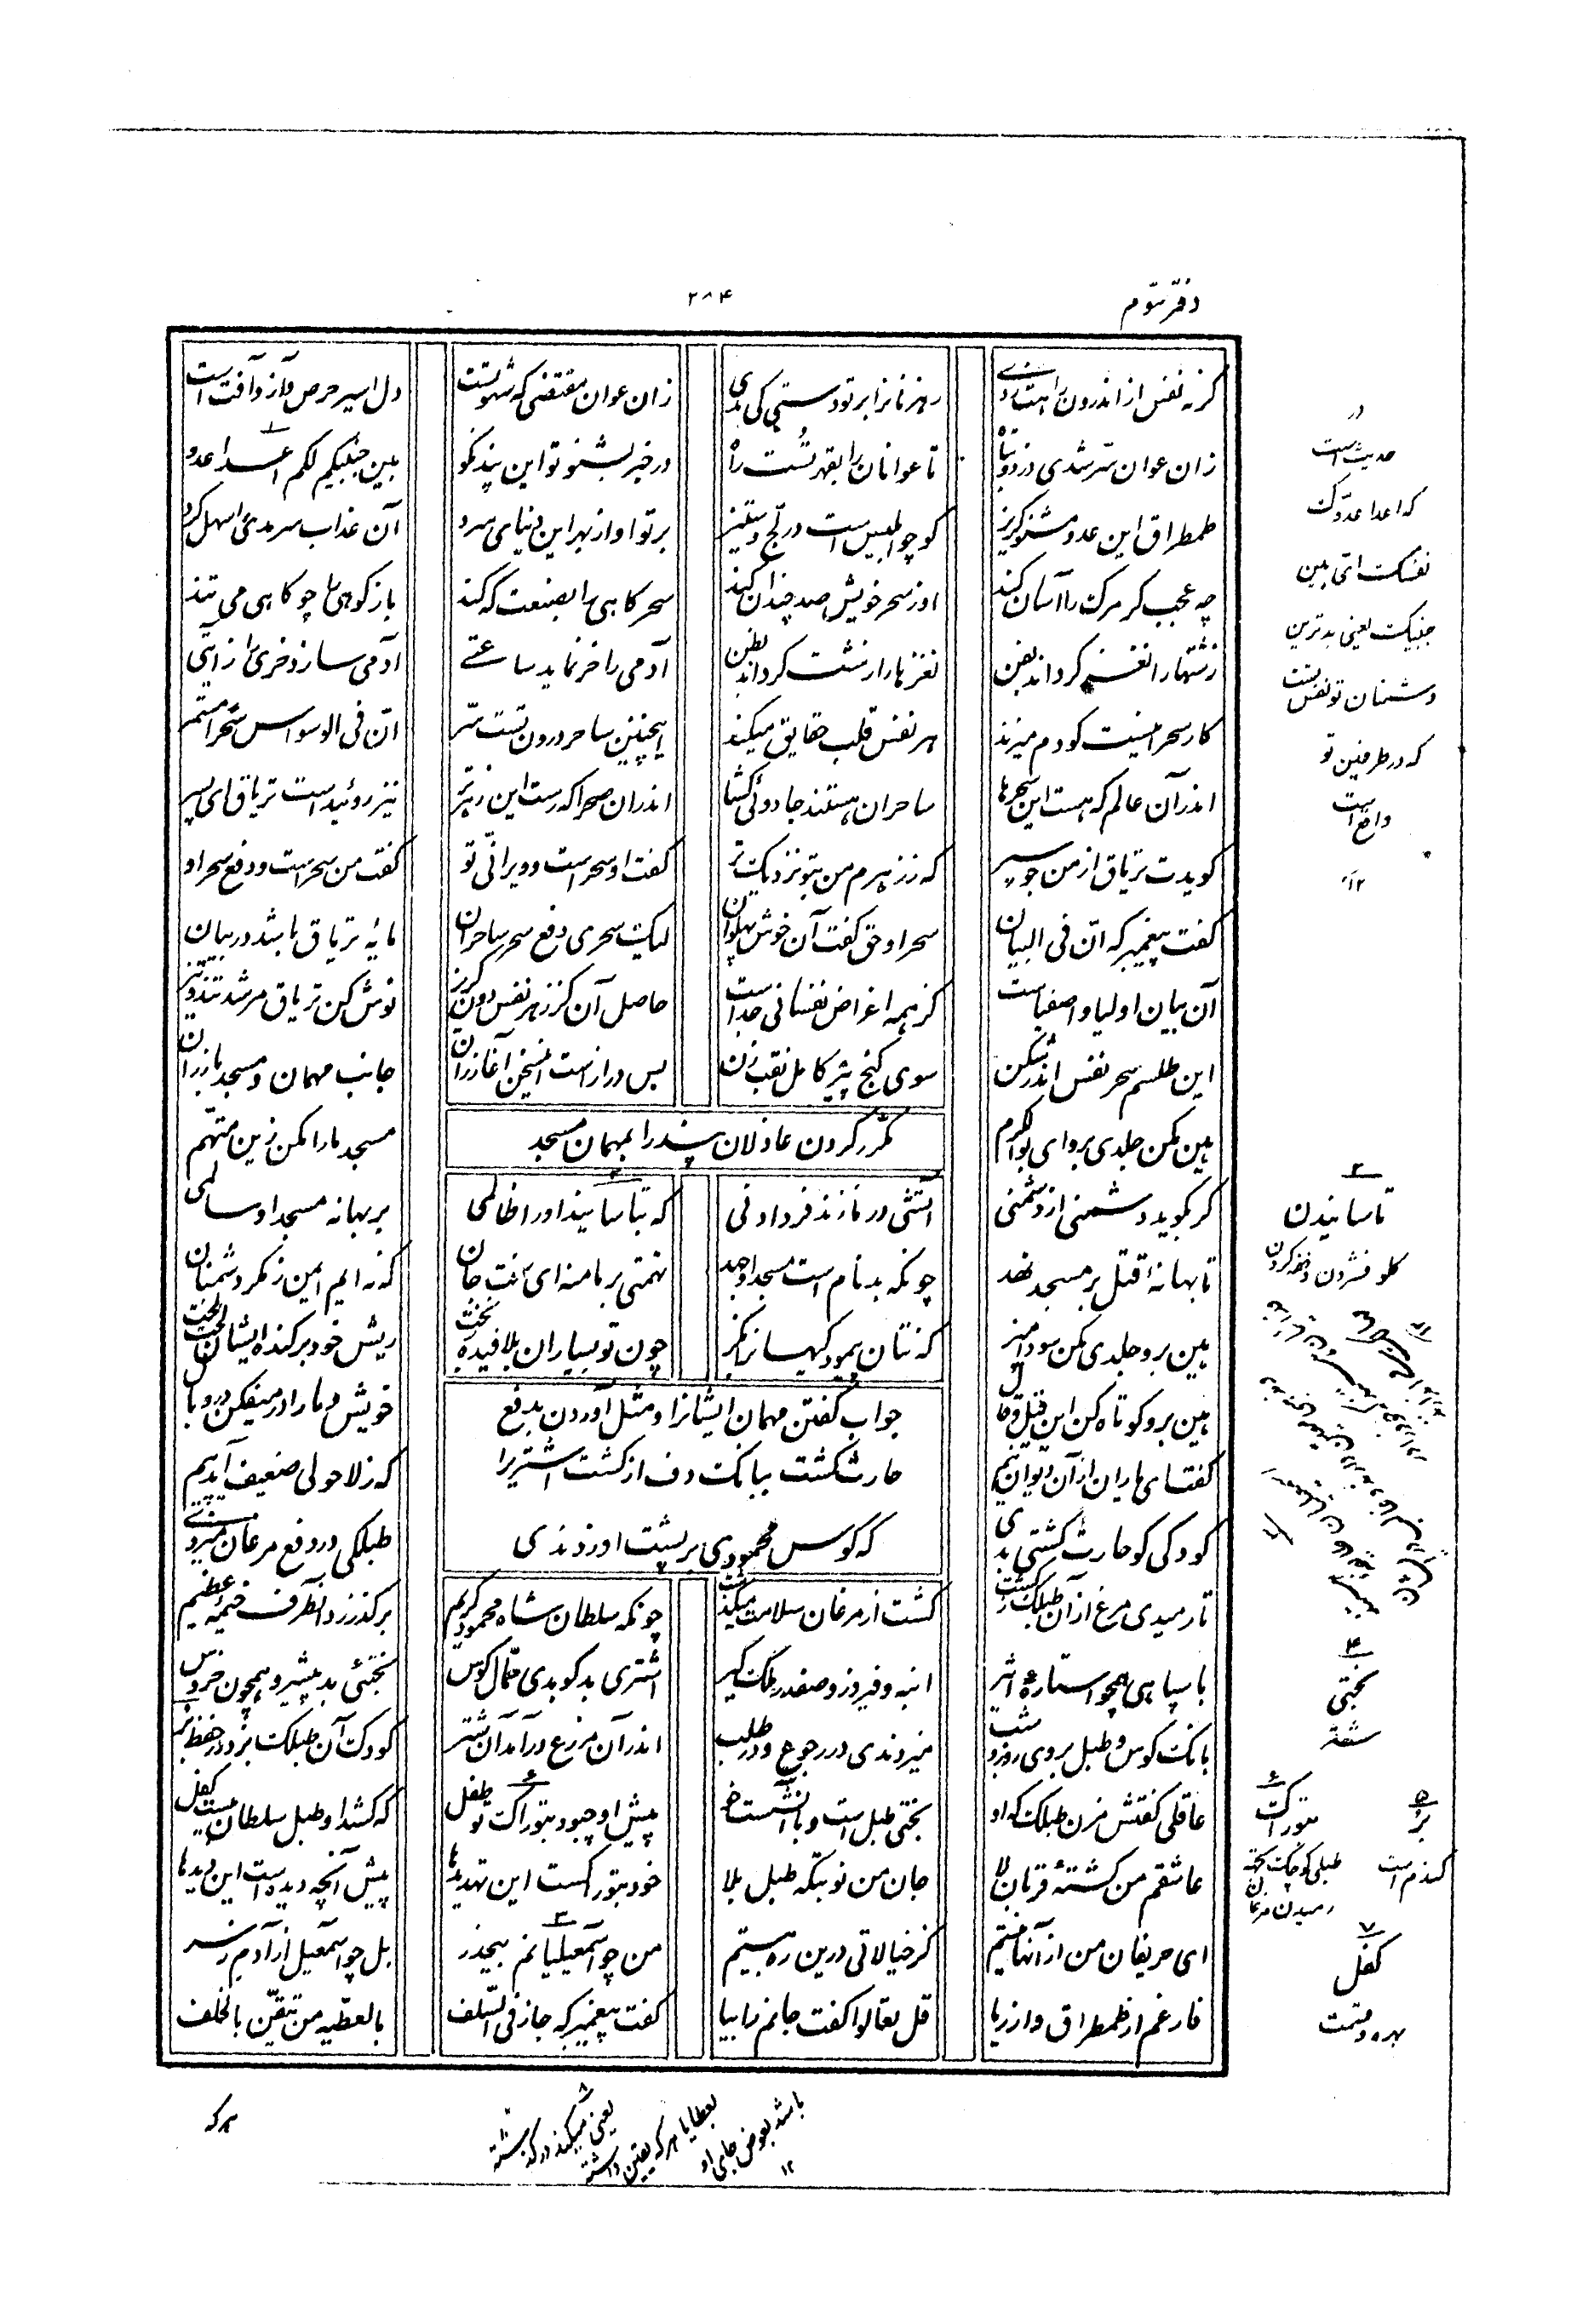 دفتر سوم
۲۸۴
گرنه نفس از اندرون راهت زدی
رهزنانرا بر تو دستی کی بدی
زان عوان مقتضی که شهوتست
دل اسیر حرص و آز و آفت است
زان عوان سر شدی دزد و تباه
تا عوانان را بقهر تست راه
در خبر بشنو تو این پند نکو
بین جنبیکم لکم اعدا عدو
طمطراق این عدو مشنو گریز
کو چو ابلیس است در لج و ستیز
بر تو او از بهر این دنیای سرد
آن عذاب سرمدی را سهل کرد
چه عجب گر مرگ را آسان کند
او ز سحر خویش صد چندان کند
سحر کاهی را بصنعت که کند
باز کوهی را چو کاهی می تند
زشتها را نغز گرداند بفن
نغزها را زشت گرداند بظن
آدمی را خر نماید ساعتی
آدمی سازد خری را ز آیتی
کار سحر اینست کو دم میزند
هر نفس قلب حقایق میکند
اینچنین ساحر درون تست سر
ان فی الوسواس سحرا مستتر
اندر آن عالم که هست این سحرها
ساحران هستند جادوئی گشا
اندران صحرا که رست این زهر تر
نیز روئیدست تریاق ای پسر
گویدت تریاق از من جو سپر
که ز زهرم من بتو نزدیک تر
گفت او سحر است و ویرانی تو
گفت من سحر است و دفع سحر او
گفت پیغمبر که ان فی البیان
سحرا و حق گفت آن خوش پهلوان
لیک سحری دفع سحر ساحران
مایه تریاق باشد در بیان
آن بیان اولیا و اصفیاست
کز همه اغراض نفسانی جداست
حاصل آن کز زهر نفس دون گریز
نوش کن تریاق مرشد تند و تیز
این طلسم سحر نفس اندر شکن
سوی گنج پیر کامل نقب زن
بس دراز است این سخن آغاز ران
جانب مهمان و مسجد باز ران
مکرر کردن عاذلان پند را بمهمان مسجد
هین مکن جلدی برو ای بوالکرم
مسجد ما را مکن زین متهم
گر بگوید دشمنی از دشمنی
آتشی در ما زند فردا دنی
که بتاسانید او را ظالمی
بر بهانه مسجد او سالمی
تا بهانه قتل بر مسجد نهد
چونکه بدنام است مسجد او جهد
تهمتی بر ما منه ای سخت جان
که نه ایم ایمن ز مکر دشمنان
هین برو جلدی مکن سودا مپز
که نتان پیمود کیهانرا بگز
چون تو بسیاران بلافیده ز بخت
ریش خود برکنده ایشان لخت لخت
هین برو کوتاه کن این قیل و قال
خویش و ما را در میفکن در وبال
جواب گفتن مهمان ایشانرا و مثل آوردن بدفع
حارث کشت ببانگ دف از کشت اشتریرا
که کوس محمودی بر پشت او زدندی
گفت ای یاران از آن دیوان نیم
که ز لاحولی ضعیف آید پیم
کودکی کو حارث کشتی بدی
طبلکی در دفع مرغان میزدی
تا رمیدی مرغ از آن طبلک ز کشت
کشت از مرغان سلامت میگذشت
چونکه سلطان شاه محمود کریم
برگذر زد آنطرف خیمه عظیم
با سپاهی همچو استاره اثیر
انبه و فیروز و صفدر ملک گیر
اشتری بد کو بدی حمال کوس
بختئی بد پیشرو همچون خروس
بانگ کوس و طبل بر وی روز و شب
میزدندی در رجوع و در طلب
اندر آن مزرع در آمد آن شتر
کودک آن طبلک بزد در حفظ بر
عاقلی گفتش مزن طبلک که او
بختی طبل است و با آنشست خو
پیش او چبود تبوراک تو طفل
که کشد او طبل سلطان بیست کفل
عاشقم من کشته قربان لا
جان من نوبتگه طبل بلا
خود تبوراکست این تهدیدها
پیش آنچه دیده است این دیدها
ای حریفان من از آنها نیستم
کز خیالاتی درین ره بیستم
من چو اسمعیلیانم بیحذر
بل چو اسمعیل آزادم ز سر
فارغم از طمطراق و از ریا
قل تعالوا گفت جانم را بیا
گفت پیغمبر که جاد فی السلف
بالعطیه من تیقن بالخلف
حدیث است
که اعدا عدوک
نفسک التی بین
جنبیک یعنی بدترین
دشمنان تو نفس تست
که در طرفین تو
واقع است
۱۲
۲
تاسانیدن
گلو فشردن و خفه کردن
۴
بختی
۵
بر
گندم است
۶
تبوراک
طبلی کوچک بجهة
رمیدن مرغان
۷
کفل
بهره و قسمت
۸
باشد بعوض جای او
بعطایا هر که یقین داشته
یعنی میکند در گذشته
۱۲
هر که